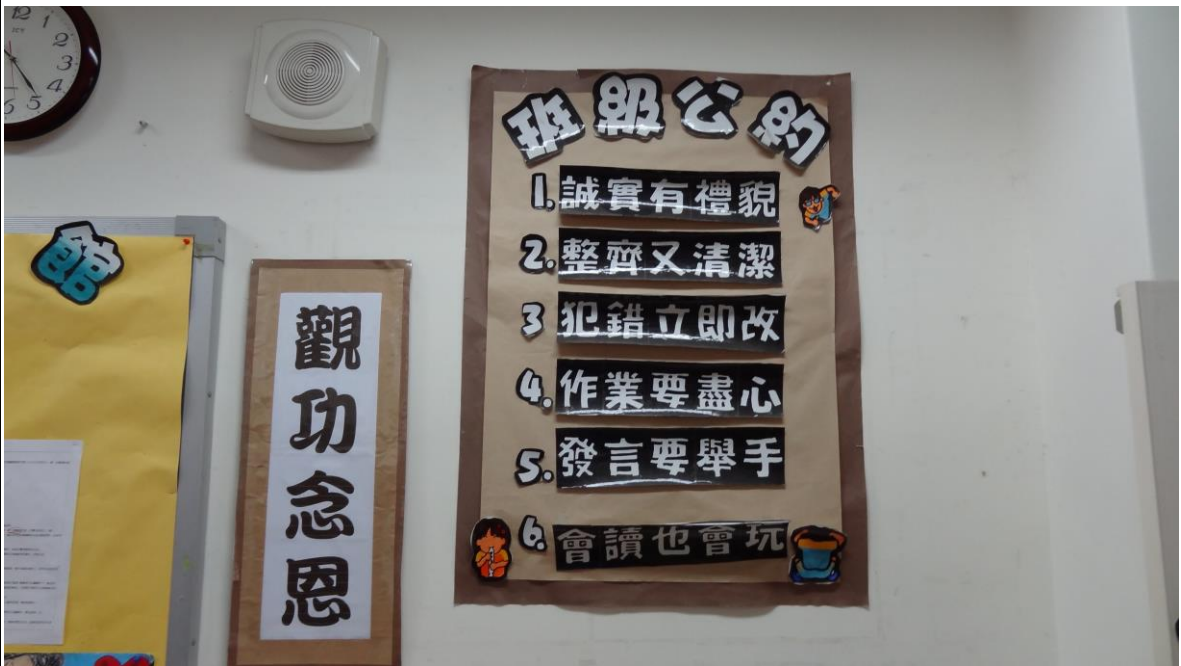 12
1
2
3
4
5
6
館
觀功念恩
班級公約
1. 誠實有禮貌
2. 整齊又清潔
3 犯錯立即改
4. 作業要盡心
5. 發言要舉手
6. 會讀也會玩